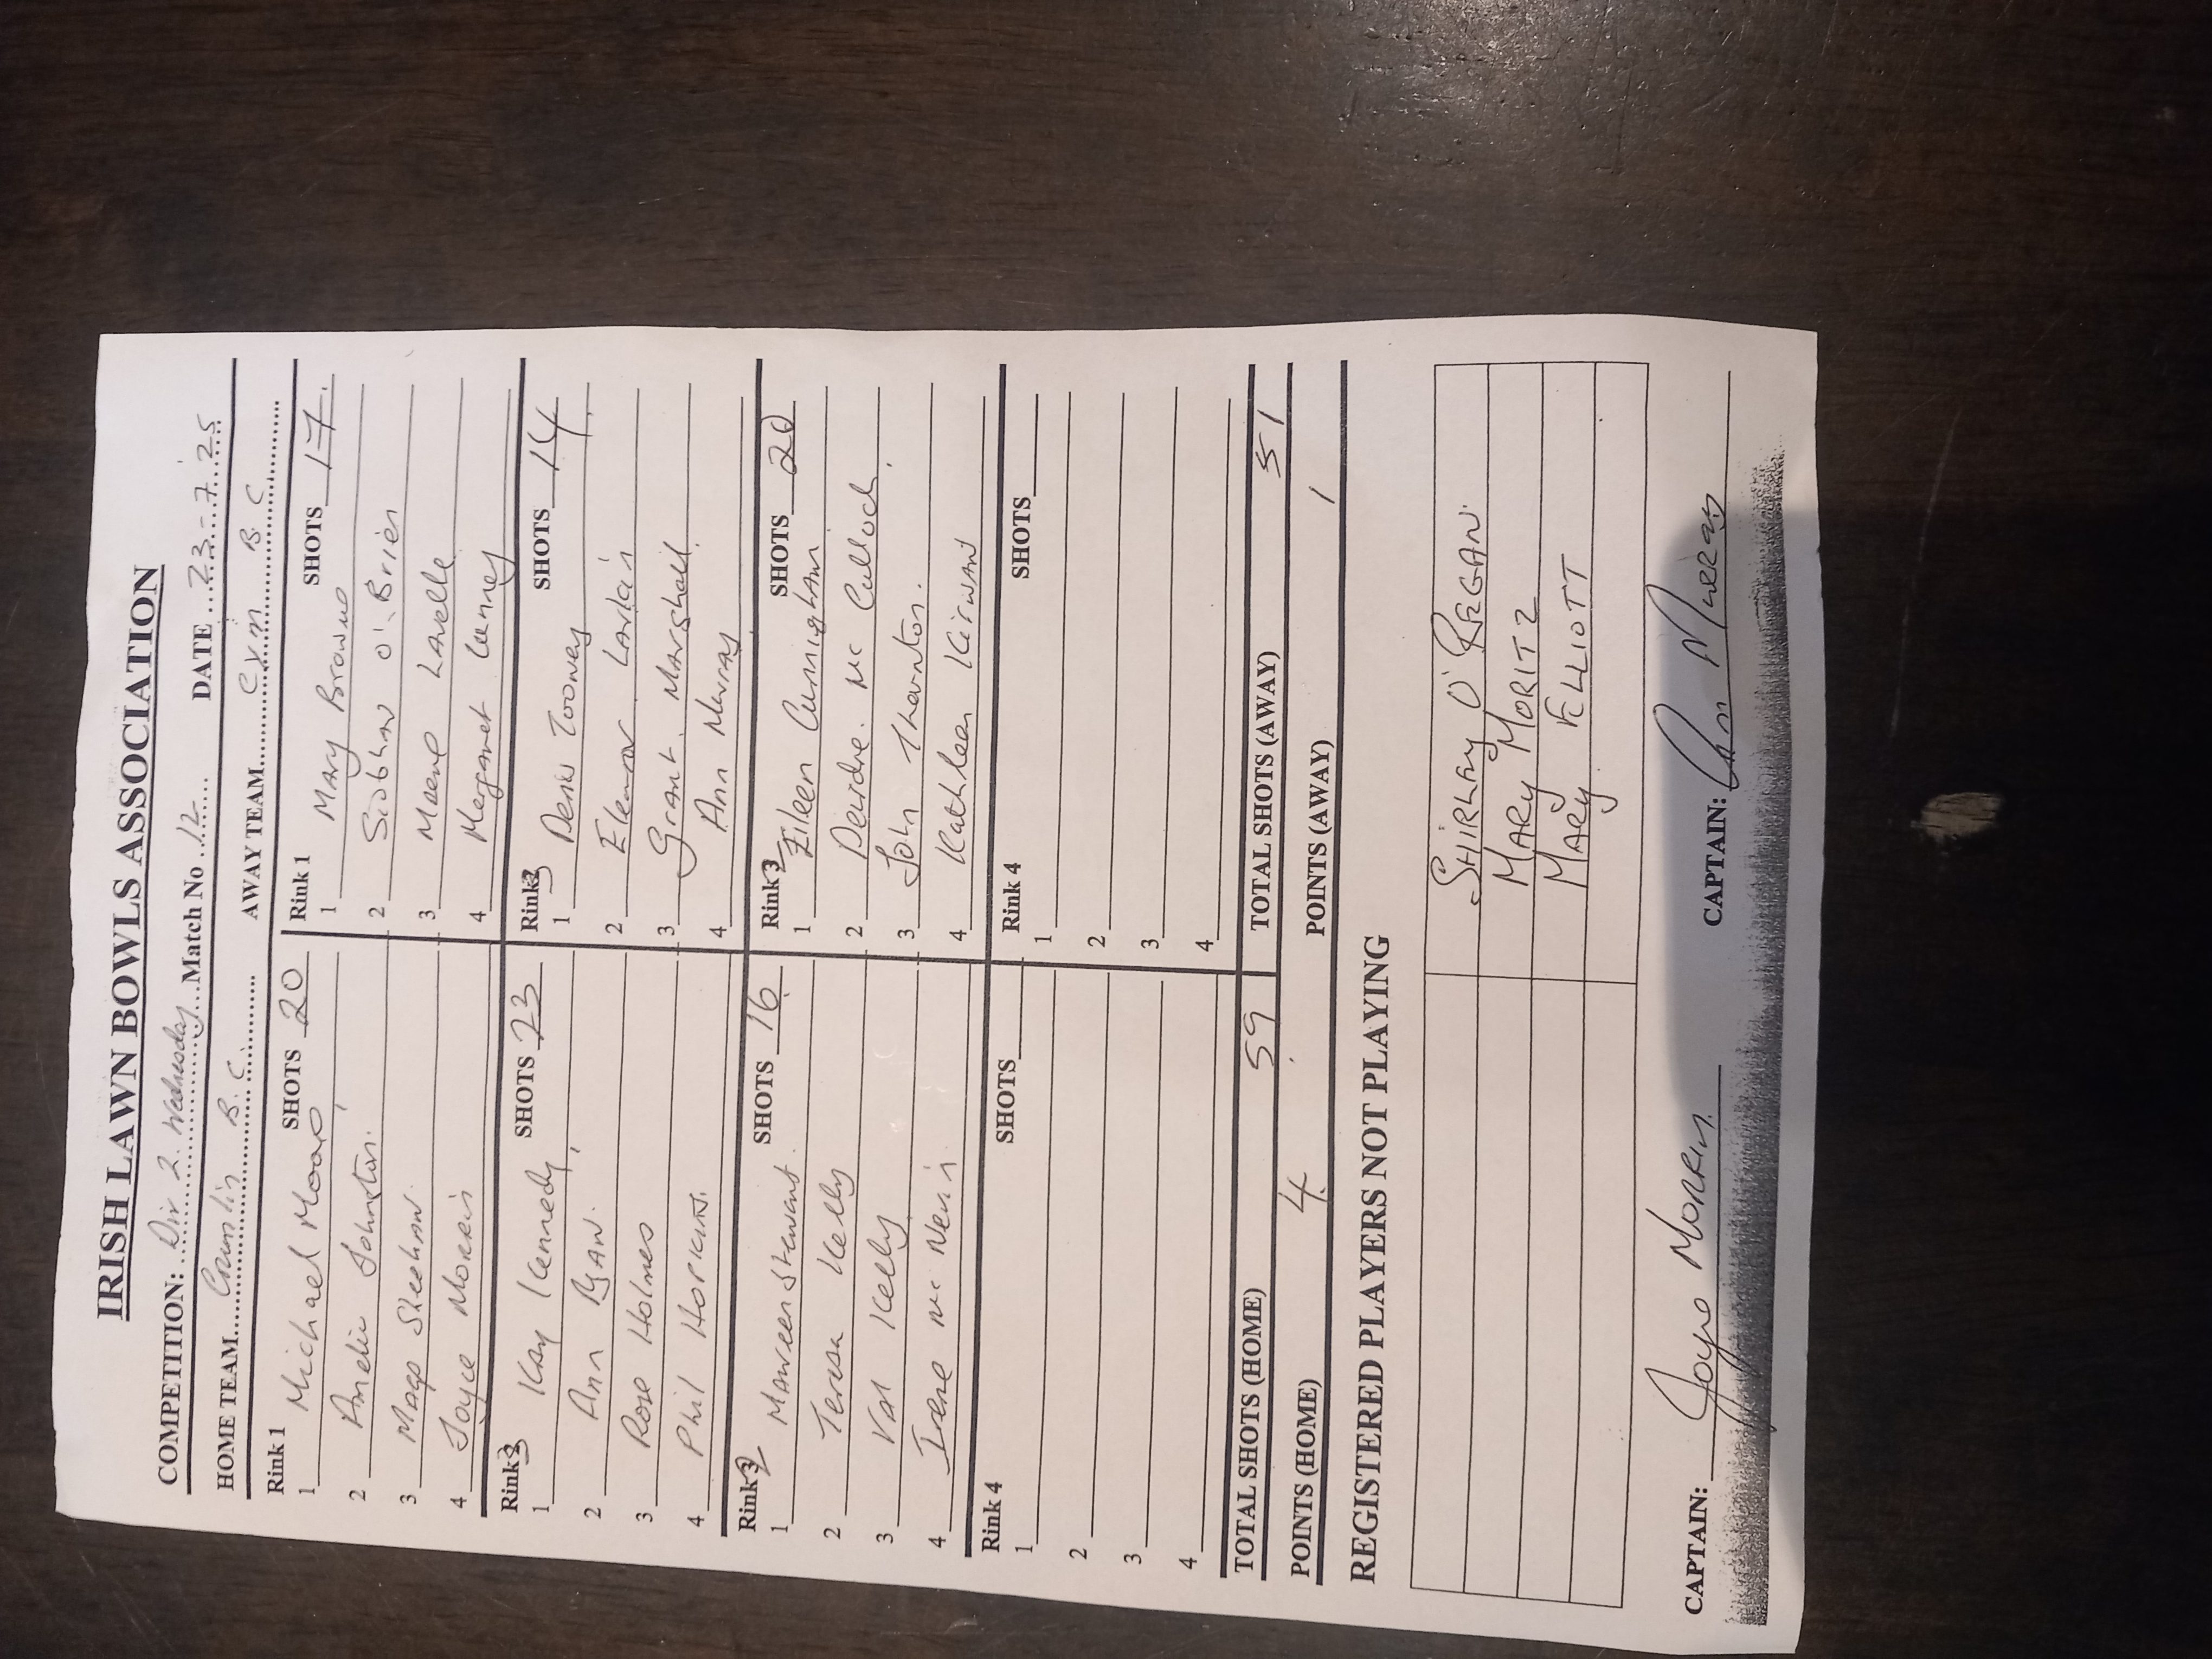 IRISH LAWN BOWLS ASSOCIATION
COMPETITION: Div 2. Wednesday Match No 12 DATE 23-7-25
HOME TEAM Crumlin B.C. AWAY TEAM C.Y.M B C
Rink 1 SHOTS 20
1 Michael Moore
2 Amelia Johnston.
3 Mags Sheehan.
4 Joyce Morris
Rink 1 SHOTS 17.
1 Mary Browne
2 Siobhan O'Brien
3 Maeve Lavelle
4 Margaret
Rink 3 SHOTS 23
1 Kay Kennedy,
2 Ann Ryan.
3 Rose Holmes
4 Phil Hopkins.
Rink 3 SHOTS 14
1 Toomey
2 Eleanor Larkin
3 Grant. Marshall.
4 Ann Murray
Rink 2 SHOTS 16
1 Maureen Stewart.
2 Teresa Kelly
3 Val Kelly
4 Irene Mc Nevin.
Rink 2 SHOTS 20
1 Eileen Cunningham
2 Deirdre. Mc Culloch.
3 John Thornton.
4 Kathleen Kirwan
Rink 4 SHOTS
1
2
3
4
Rink 4 SHOTS
1
2
3
4
TOTAL SHOTS (HOME) 59 TOTAL SHOTS (AWAY) 51
POINTS (HOME) 4. POINTS (AWAY) 1
REGISTERED PLAYERS NOT PLAYING
SHIRLEY O'REGAN.
MARY MORITZ
MARY ELLIOTT
CAPTAIN: Joyce MORRIS. CAPTAIN: Ann Murray